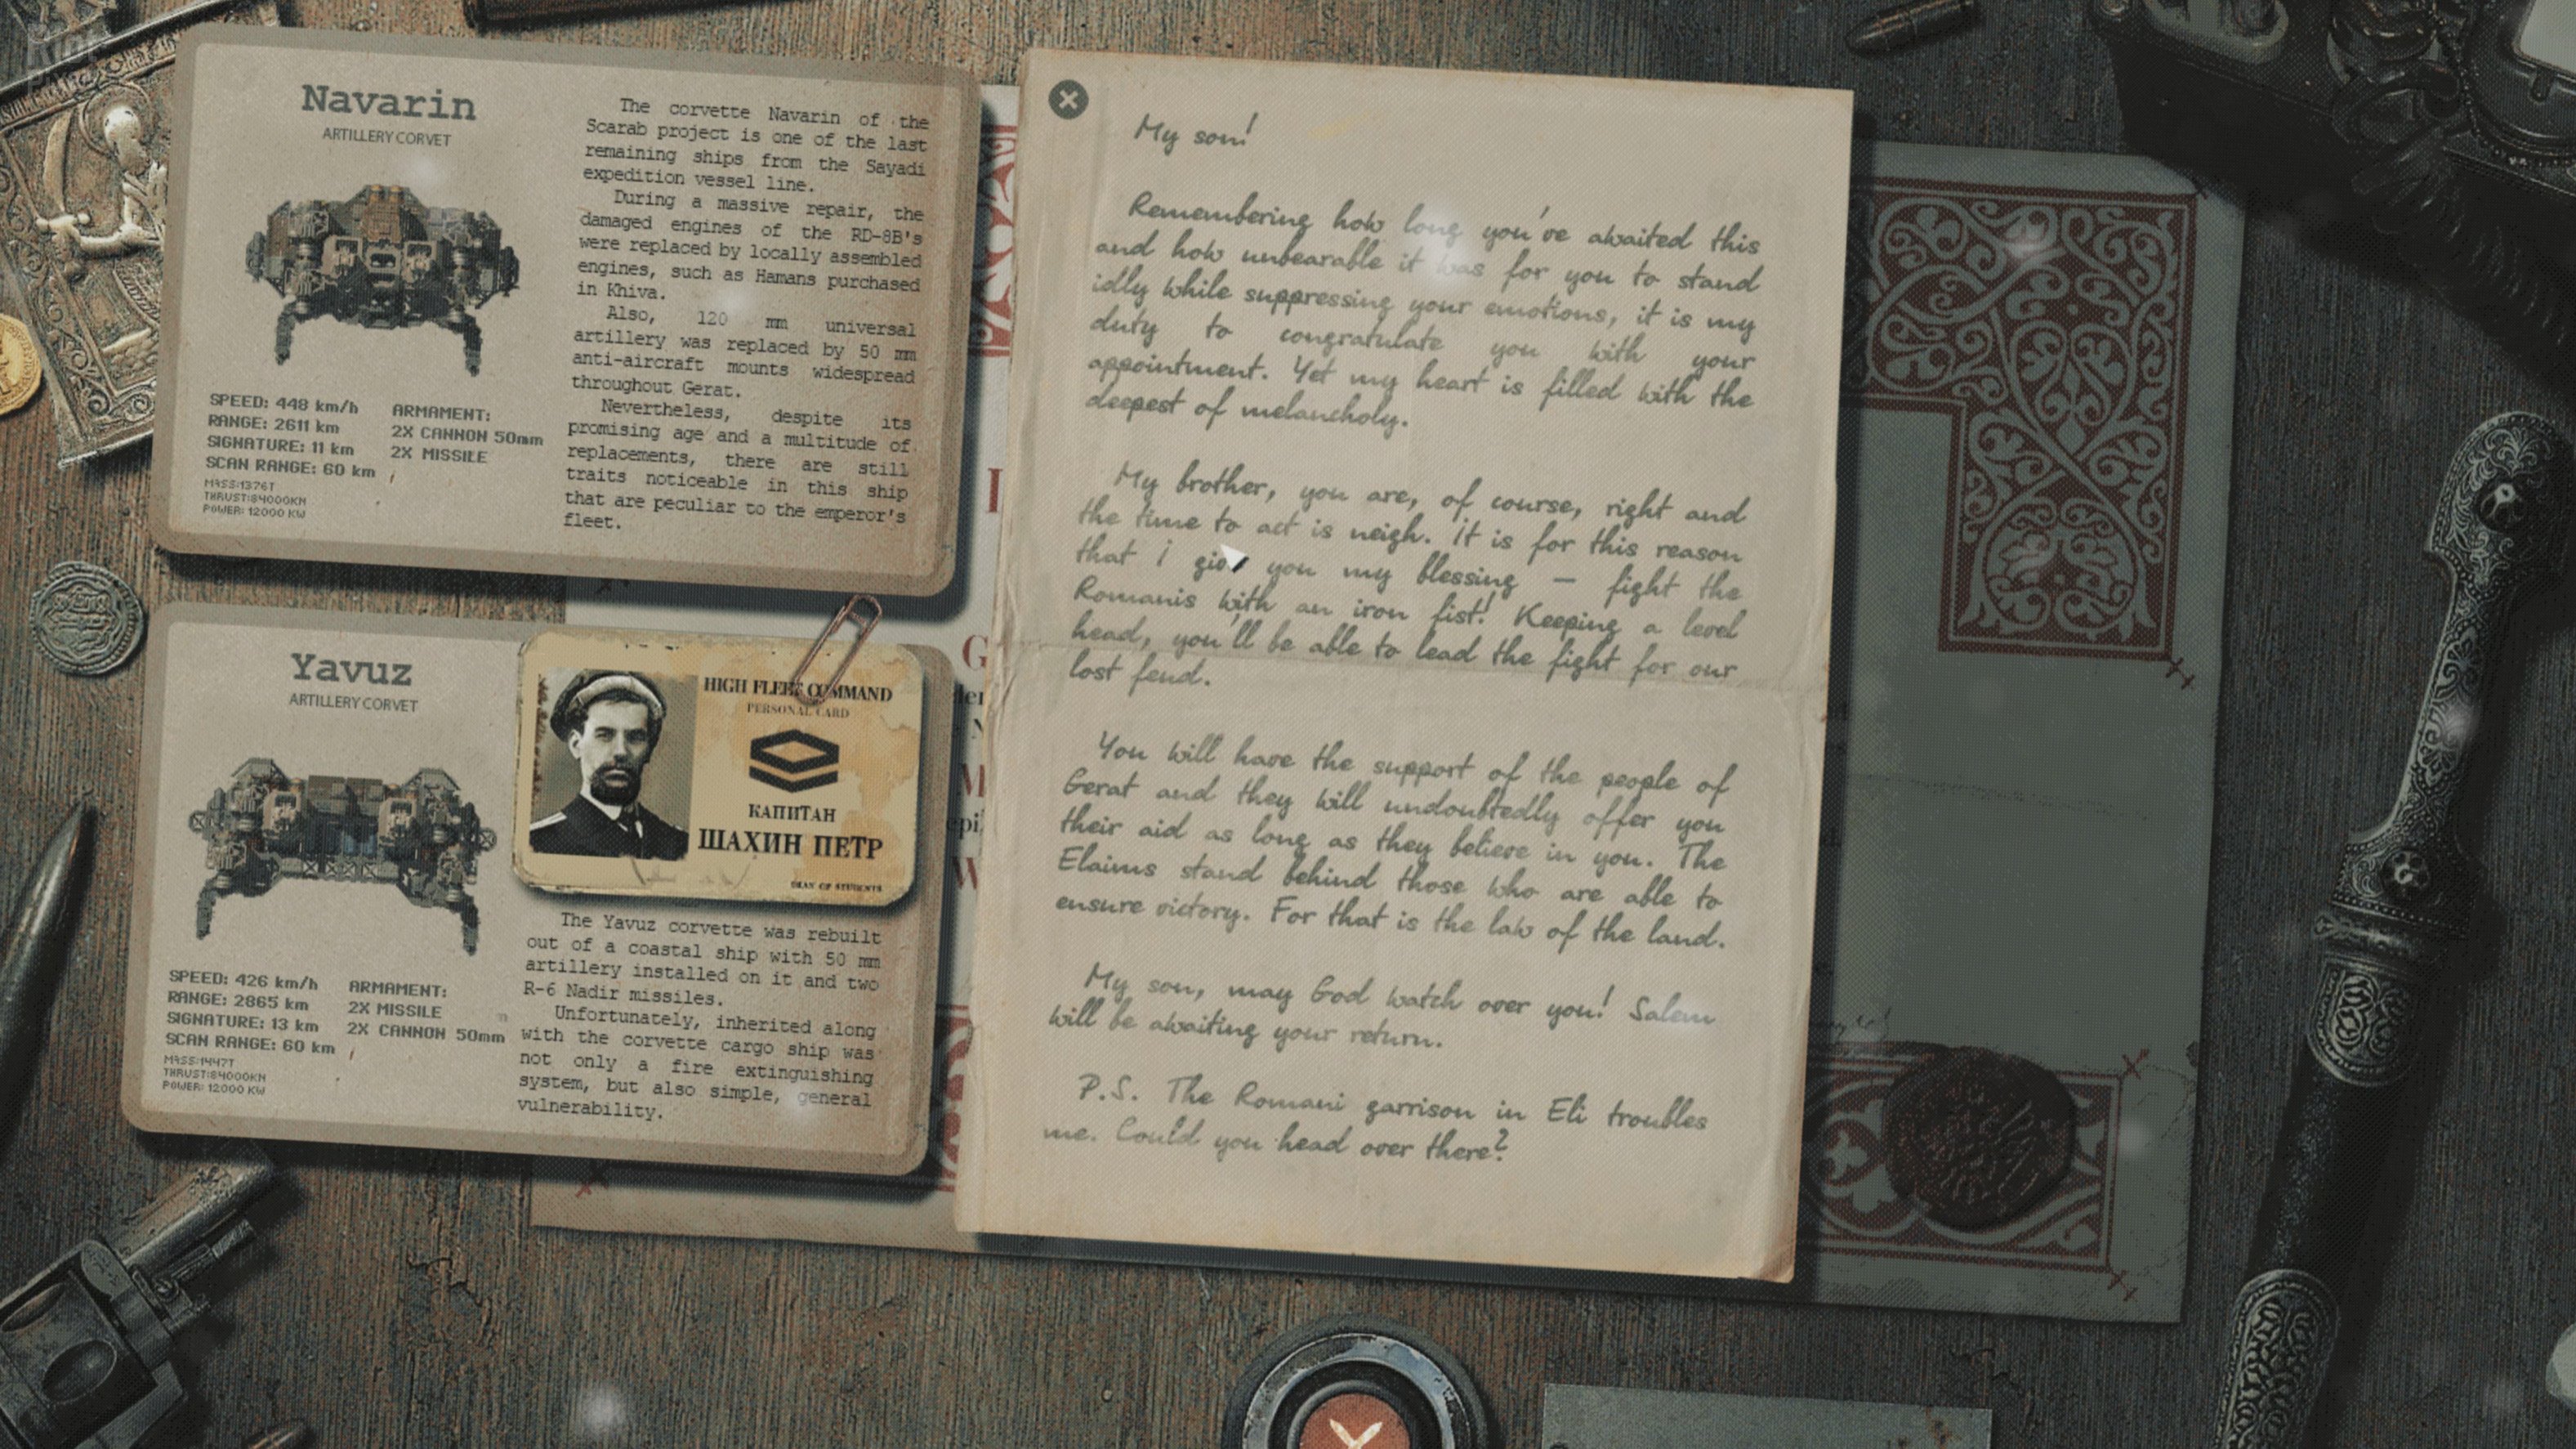 Navarin
ARTILLERY CORVET
SPEED: 448 km/h
RANGE: 2611 km
SIGNATURE: 11 km
SCAN RANGE: 60 km
MASS:1376T
THRUST:84000KN
POWER: 12000 KW
ARMAMENT:
2X CANNON 50mm
2X MISSILE
The corvette Navarin of the
Scarab project is one of the last
remaining ships from the Sayadi
expedition vessel line.
During a massive repair, the
damaged engines of the RD-8B's
were replaced by locally assembled
engines, such as Hamans purchased
in Khiva.
Also, 120 mm universal
artillery was replaced by 50 mm
anti-aircraft mounts widespread
throughout Gerat.
Nevertheless, despite its
promising age and a multitude of
replacements, there are still
traits noticeable in this ship
that are peculiar to the emperor's
fleet.
Yavuz
ARTILLERY CORVET
SPEED: 426 km/h
RANGE: 2865 km
SIGNATURE: 13 km
SCAN RANGE: 60 km
MASS:1447T
THRUST:84000KN
POWER: 12000 KW
ARMAMENT:
2X MISSILE
2X CANNON 50mm
HIGH FLEET COMMAND
PERSONAL CARD
КАПИТАН
ШАХИН ПЕТР
DEAN OF STUDENTS
The Yavuz corvette was rebuilt
out of a coastal ship with 50 mm
artillery installed on it and two
R-6 Nadir missiles.
Unfortunately, inherited along
with the corvette cargo ship was
not only a fire extinguishing
system, but also simple, general
vulnerability.
My son!
Remembering how long you've awaited this
and how unbearable it was for you to stand
idly while suppressing your emotions, it is my
duty to congratulate you with your
appointment. Yet my heart is filled with the
deepest of melancholy.
My brother, you are, of course, right and
the time to act is neigh. It is for this reason
that I give you my blessing – fight the
Romanis with an iron fist! Keeping a level
head, you'll be able to lead the fight for our
lost feud.
You will have the support of the people of
Gerat and they will undoubtedly offer you
their aid as long as they believe in you. The
Elaims stand behind those who are able to
ensure victory. For that is the law of the land.
My son, may God watch over you! Salem
will be awaiting your return.
P.S. The Romani garrison in Eli troubles
me. Could you head over there?